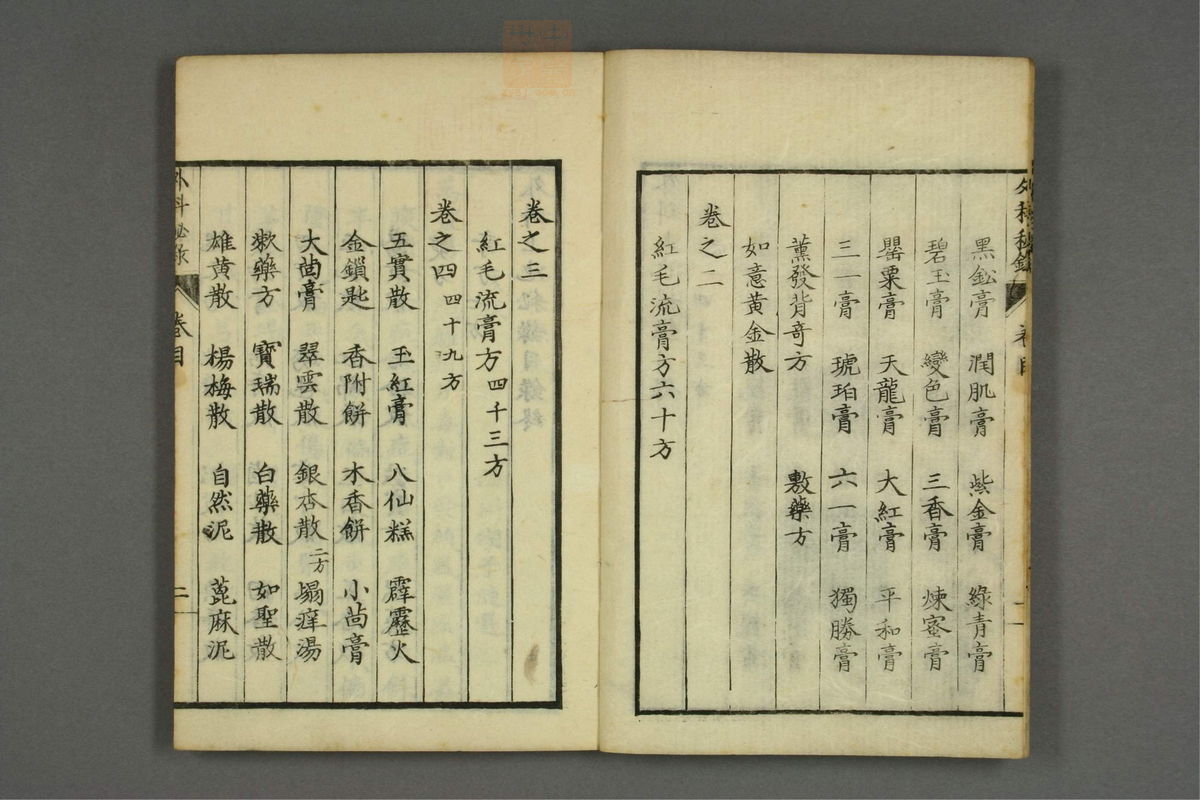 外科秘錄
卷目
黑鉛膏 潤肌膏 紫金膏 綠青膏
碧玉膏 變色膏 三香膏 煉蜜膏
罌粟膏 天龍膏 大紅膏 平和膏
三一膏 琥珀膏 六一膏 獨勝膏
薰發背奇方 敷藥方
如意黃金散
卷之二
紅毛流膏方六十方
卷之三
紅毛流膏方四千三方
卷之四 四十九方
五實散 玉紅膏 八仙糕 霹靂火
金鎖匙 香附餅 木香餅 小茴膏
大茴膏 翠雲散 銀杏散二方 塌痒湯
漱藥方 寶瑞散 白藥散 如聖散
雄黃散 楊梅散 自然泥 蓖麻泥
外科秘錄
卷目
二